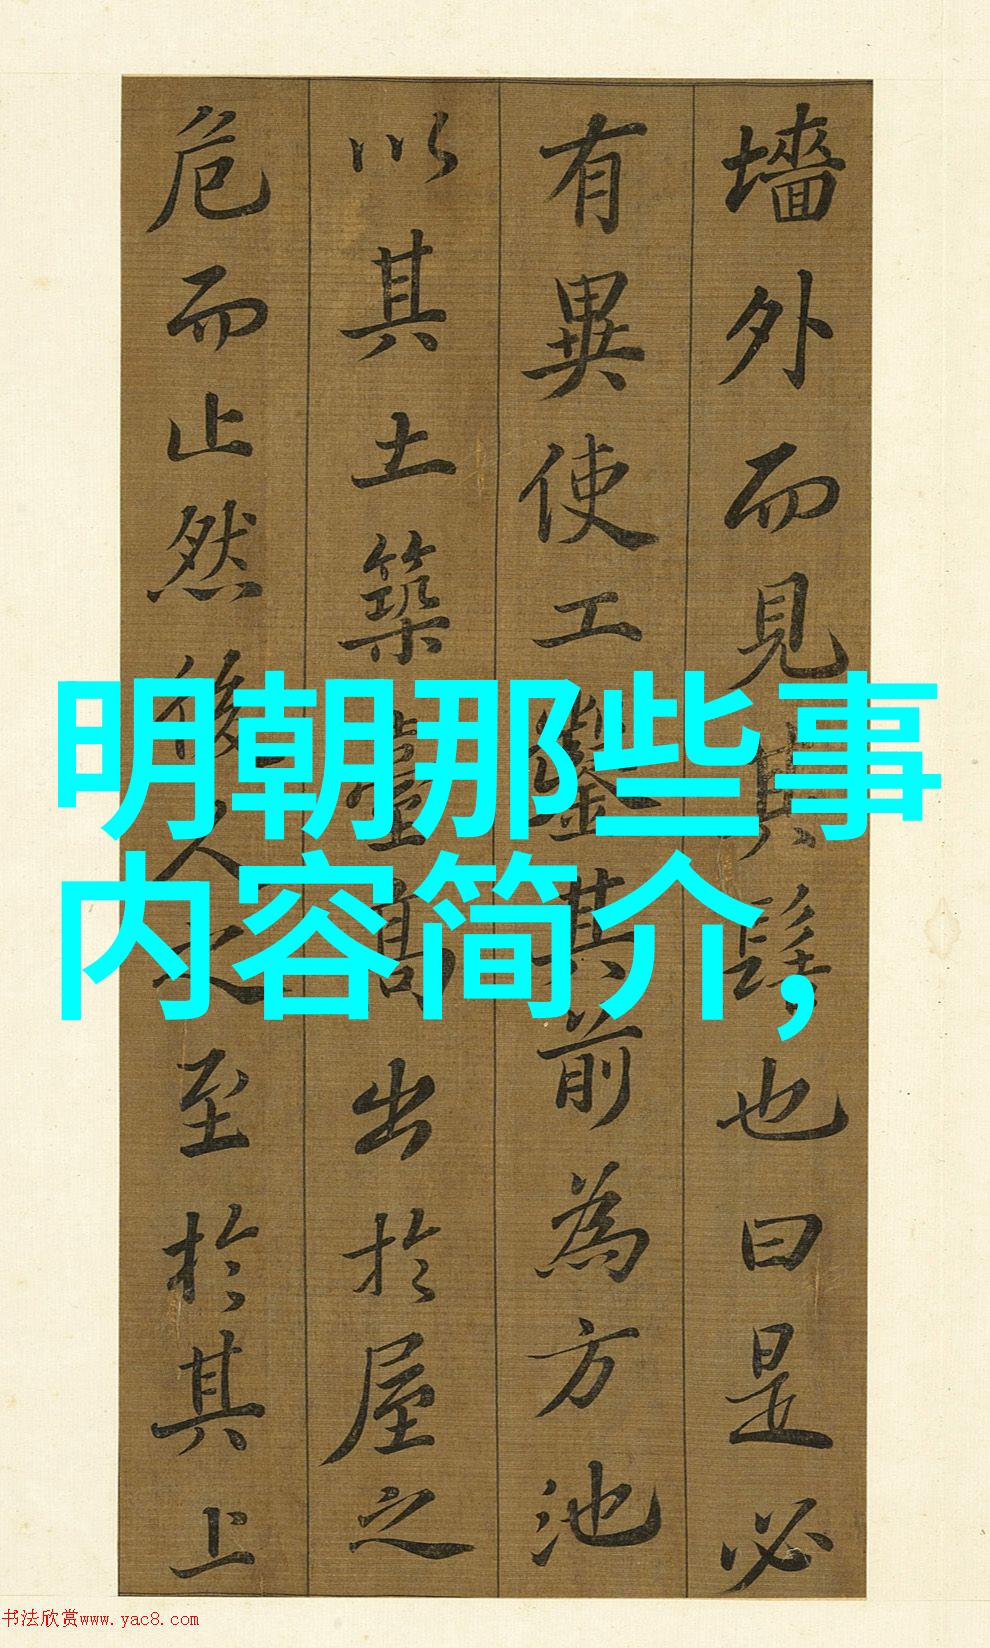 墻外而見其髻也曰是必
有異使工鑿其前為方池
以其土築臺髙出於屋之
危而止然後人之至於其上
明朝那些事
内容简介，
书法欣赏www.yac8.com